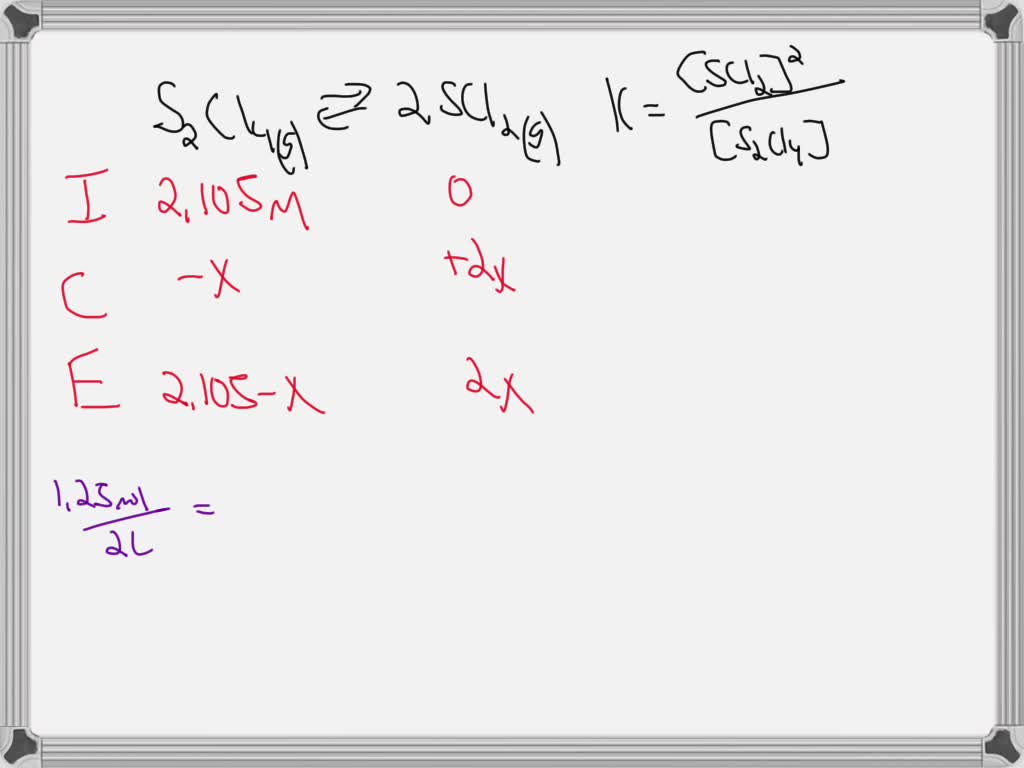 S₂Cl₄(g) ⇌ 2SCl₂(g) K = [SCl₂]² / [S₂Cl₄]
I 2.105M 0
C -x +2x
E 2.105-x 2x
1.25mol / 2L =